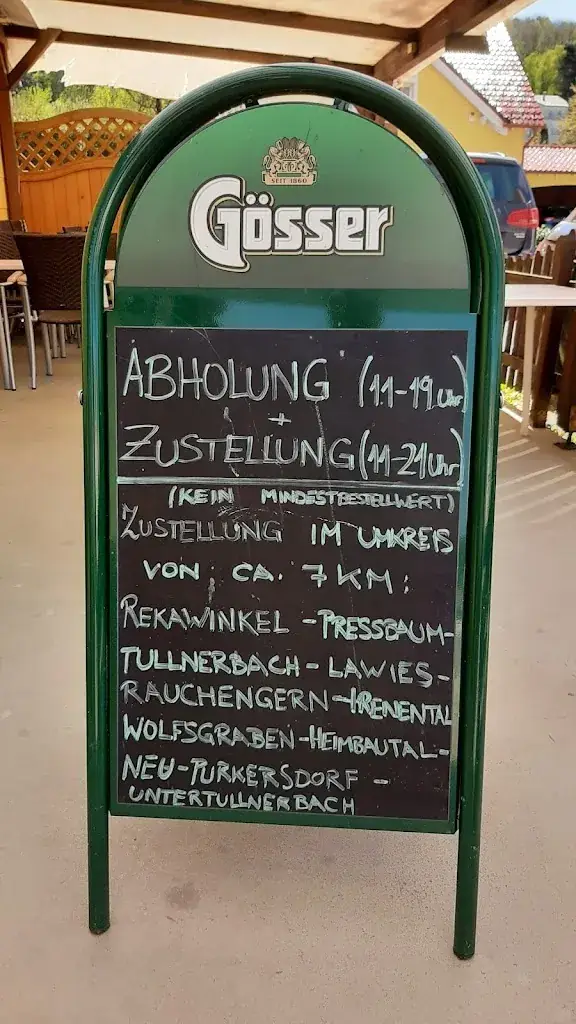 SEIT 1860
Gösser
ABHOLUNG (11-19 Uhr)
+
ZUSTELLUNG (11-21 Uhr)
(KEIN MINDESTBESTELLWERT)
ZUSTELLUNG IM UMKREIS
VON CA. 7 KM:
REKAWINKEL - PRESSBAUM-
TULLNERBACH - LAWIES-
RAUCHENGERN - IRENENTAL
WOLFSGRABEN - HEIMBAUTAL -
NEU-PURKERSDORF -
UNTERTULLNERBACH